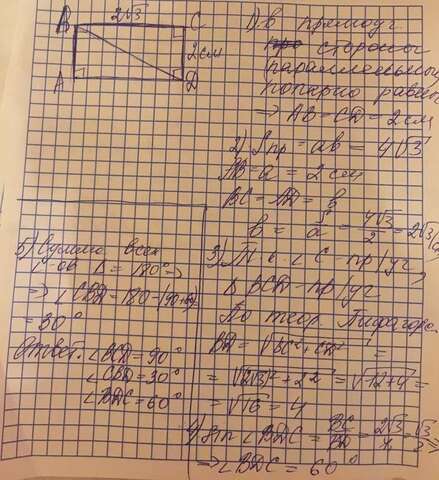 B 2√3 C
2см
A D
1) В прямоуг
стороны
(параллельны)
попарно равны
⇒ AB = CD = 2 см
2) Sпр = ab = 4√3
AB = a = 2 см
BC = AD = b
b = S/a = 4√3/2 = 2√3
3) Т. к. ∠C - пр/уг,
△BCD - пр/уг
По теор. Пифагора
BD = √BC² + CD² =
= √(2√3)² + 2² = √12+4 =
= √16 = 4
4) sin ∠BDC = BC/BD = 2√3/4 = √3/2 ⇒
⇒ ∠BDC = 60°
5) Сумма всех
∠-ов △ = 180° ⇒
⇒ ∠CBD = 180 - (90+60)
= 30°
Ответ: ∠BCD = 90°
∠CBD = 30°
∠BDC = 60°